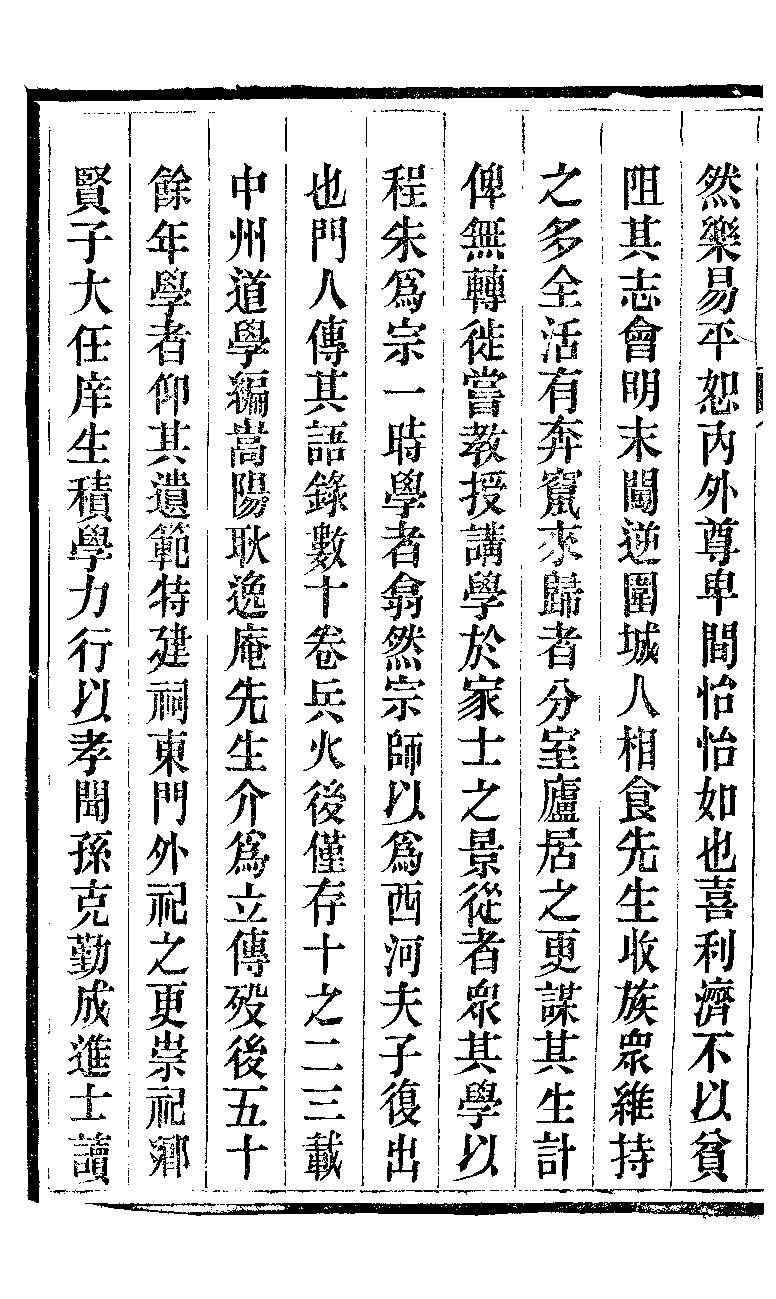 然樂易平恕內外尊卑間怡怡如也喜利濟不以貧
阻其志會明末闖逆圍城人相食先生收族眾維持
之多全活有奔竄來歸者分室廬居之更謀其生計
俾無轉徙嘗教授講學於家士之景從者眾其學以
程朱爲宗一時學者翕然宗師以爲西河夫子復出
也門人傳其語錄數十卷兵火後僅存十之二三載
中州道學編嵩陽耿逸庵先生介爲立傳歿後五十
餘年學者仰其遺範特建祠東門外祀之更崇祀鄉
賢子大任庠生積學力行以孝聞孫克勤成進士讀